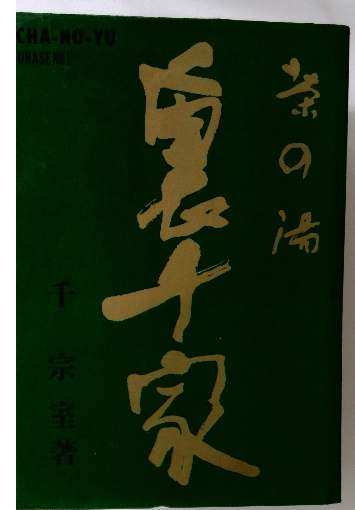 CHA-NO-YU
URASENKE
茶の湯
裏千家
千宗室著